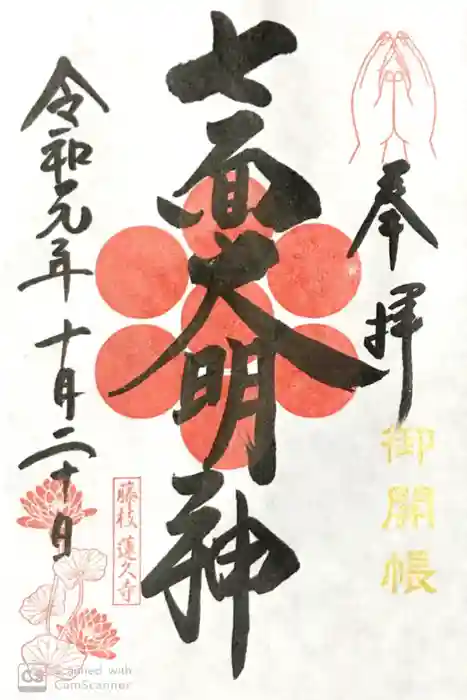 奉拝
御開帳
七面大明神
藤枝 蓮久寺
令和元年十月二十日
CS Scanned with
CamScanner